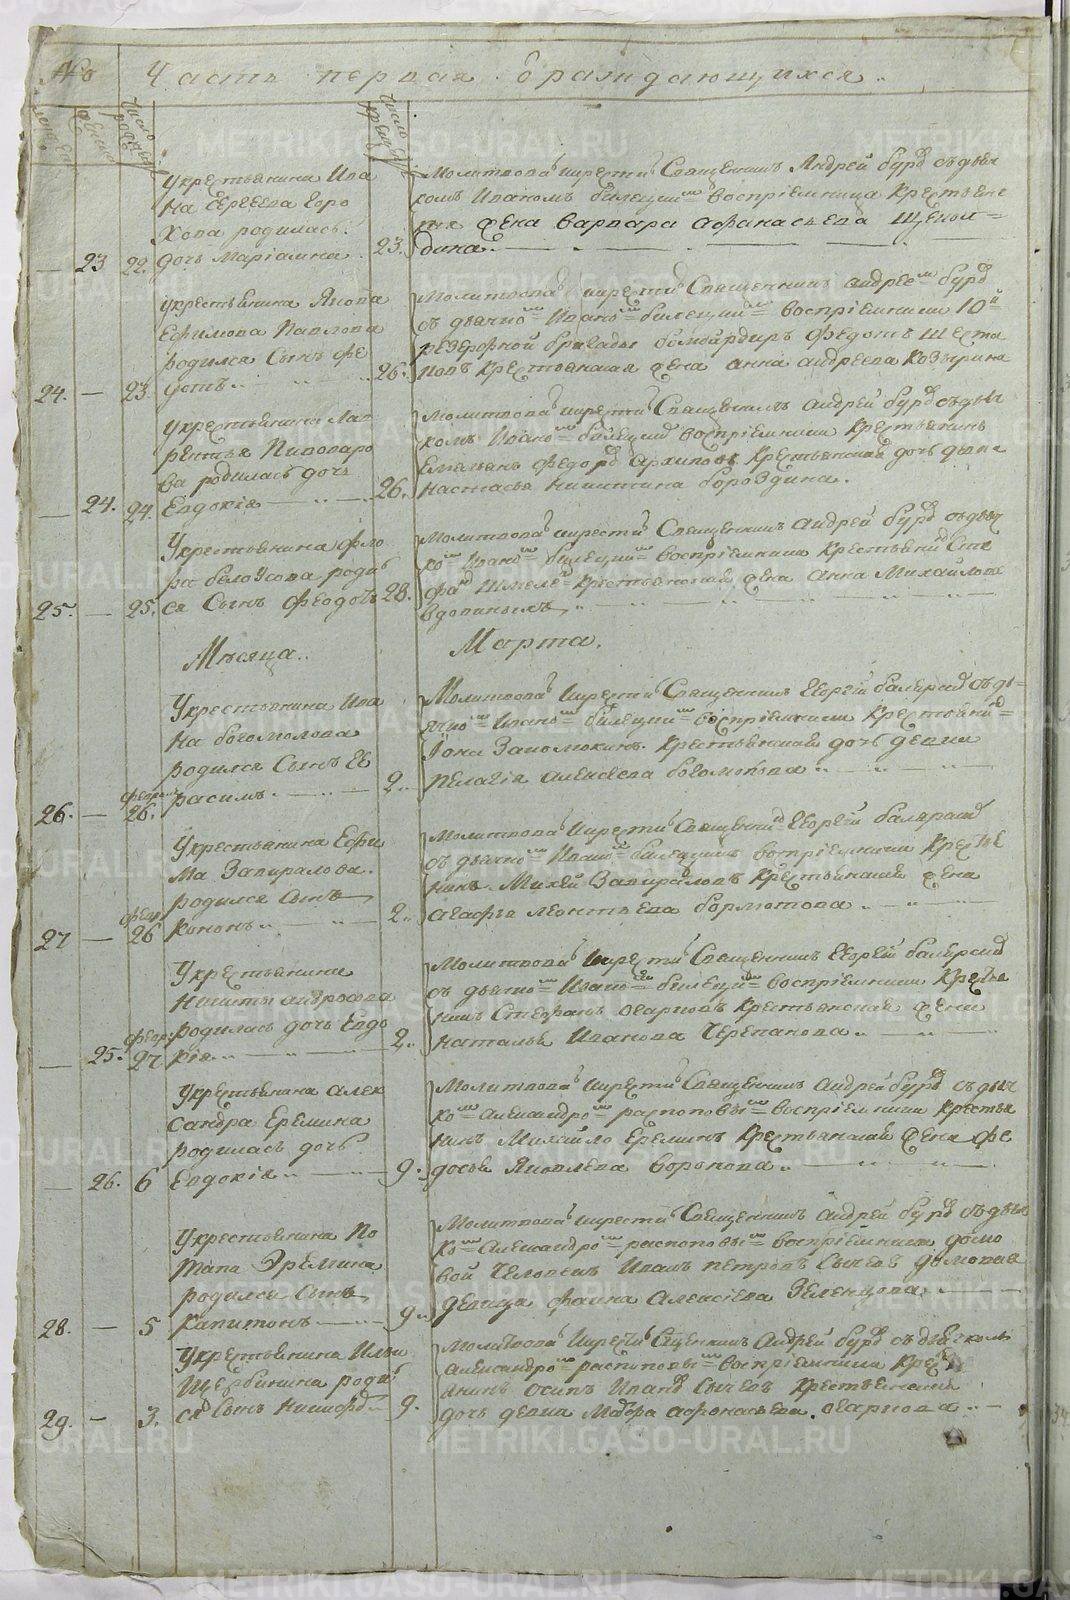 №
Часть первая о раждающихся
У крестьянина Ива
на Сергеева Горо
хова родилась
23 22. дочь Мариамна 23.
Молитвовалъ и крестилъ Священникъ Андрей Бурд съ дьяч
комъ Иваномъ Билецкимъ восприемница крестьянс
кая жена Варвара Афанасьева Щекол
дина.
У крестьянина Якова
Ефимова Павлова
родился Сынъ Фе
24. — 23. 26.
Молитвовалъ и крестилъ Священникъ Андрей Бурд
съ дьячко Ивано Билецки восприемники 10й
резерфной бригады бомбардиръ Федотъ Шерта
повъ крестьянская жена Анна Андреева Козырина
У крестьянина Лав
рентья Пивоваро
ва родилась дочь
24. 24. Евдокия 26.
Молитвовалъ и крестилъ Священникъ Андрей Бурд съ дьяч
комъ Ивано Билецки восприемники крестьянинъ
Емельянъ Федоро Архиповъ крестьянская дочь девка
Настасья Никитина Бороздина.
У крестьянина Фло
ра Белоусова роди
25. — 25. ся Сынъ Феодотъ 28.
Молитвовалъ и крестилъ Священникъ Андрей Бурд съ дьяч
ко Ивано Билецки восприемники крестьяни Сте
фа крестьянская жена Анна Михайлова
Вдовиныхъ
Месяца. Марта.
У крестьянина Ива
на Богомолова
родился Сынъ Ге
26. — феврал 26. расимъ 2.
Молитвовалъ и крестилъ Священникъ Георгий Балерид съ дь
ячко Ивано Билецки восприемники крестьяни
Иона крестьянская дочь девка
Пелагия Алексеева Богомолова
У крестьянина Ефи
ма Завиралова.
родился Сынъ
27 — февр 26 Кононъ 2.
Молитвовалъ и крестилъ Священни Георгий
съ дьячко Ивано Билецкимъ восприемники крестья
нинъ Михей Завираловъ крестьянская жена
Агафья Леонтьева Бормотова
У крестьянина
Никиты Андросова
родилась дочь Евдо
25. февр 27 кия 2.
Молитвовалъ и крестилъ Священникъ Георгий
съ дьячко Ивано Билецки восприемники крестья
нинъ Стефанъ крестьянская жена
Наталья Иванова Черепанова
У крестьянина Алек
сандра Еремина
родилась дочь
26. 6 Евдокия 9.
Молитвовалъ и крестилъ Священникъ Андрей Бурд съ дьяч
ко Александро Распоповы восприемники крестья
нинъ Михайло Ереминъ крестьянская жена Фе
досья Яковлева Воронова
У крестьянина По
тапа Эремина
родился Сынъ
28. — 5 Капитонъ 9.
Молитвовалъ и крестилъ Священникъ Андрей Бурд съ дьяч
ко Александро Распоповы восприемники домо
вой человекъ Иванъ Петровъ Сычевъ домовая
девица Фаина Алексеева Зеленцова
У крестьянина Ильи
Щербинина роди
29. — 3. ся Сынъ Никифор 9.
Молитвовалъ и крестилъ Сщенникъ Андрей Бурд съ дьячкомъ
Александро Распоповы восприемники крест
янинъ Осипъ Ивано Сычевъ крестьянская
дочь девка Мавра Афонасьева
METRIKI.GASO-URAL.RU